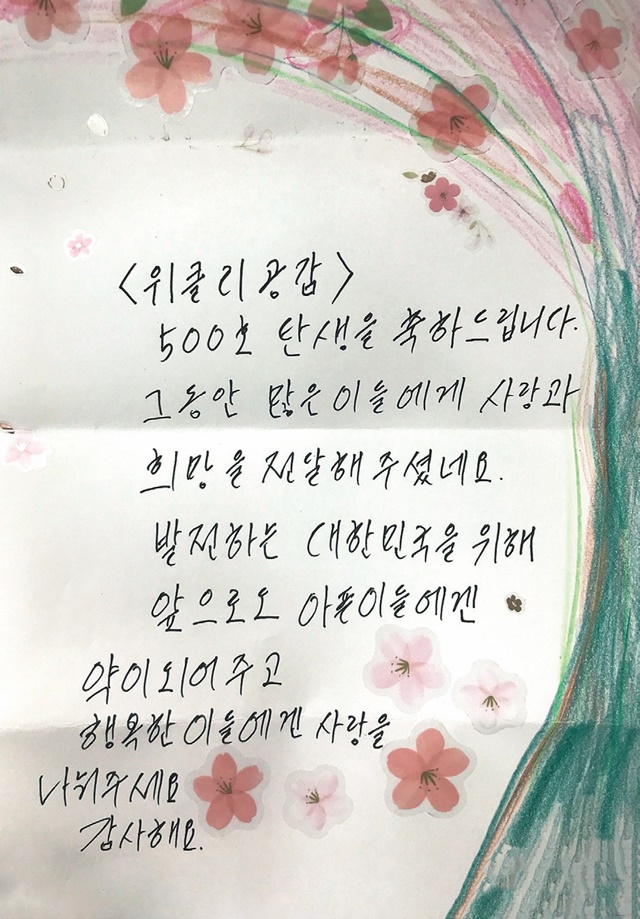 <위클리공감>
500호 탄생을 축하드립니다.
그동안 많은이들에게 사랑과
희망을 전달해주셨네요.
발전하는 대한민국을 위해
앞으로도 아픈이들에겐
약이되어주고
행복한이들에겐 사랑을
나눠주세요
감사해요.